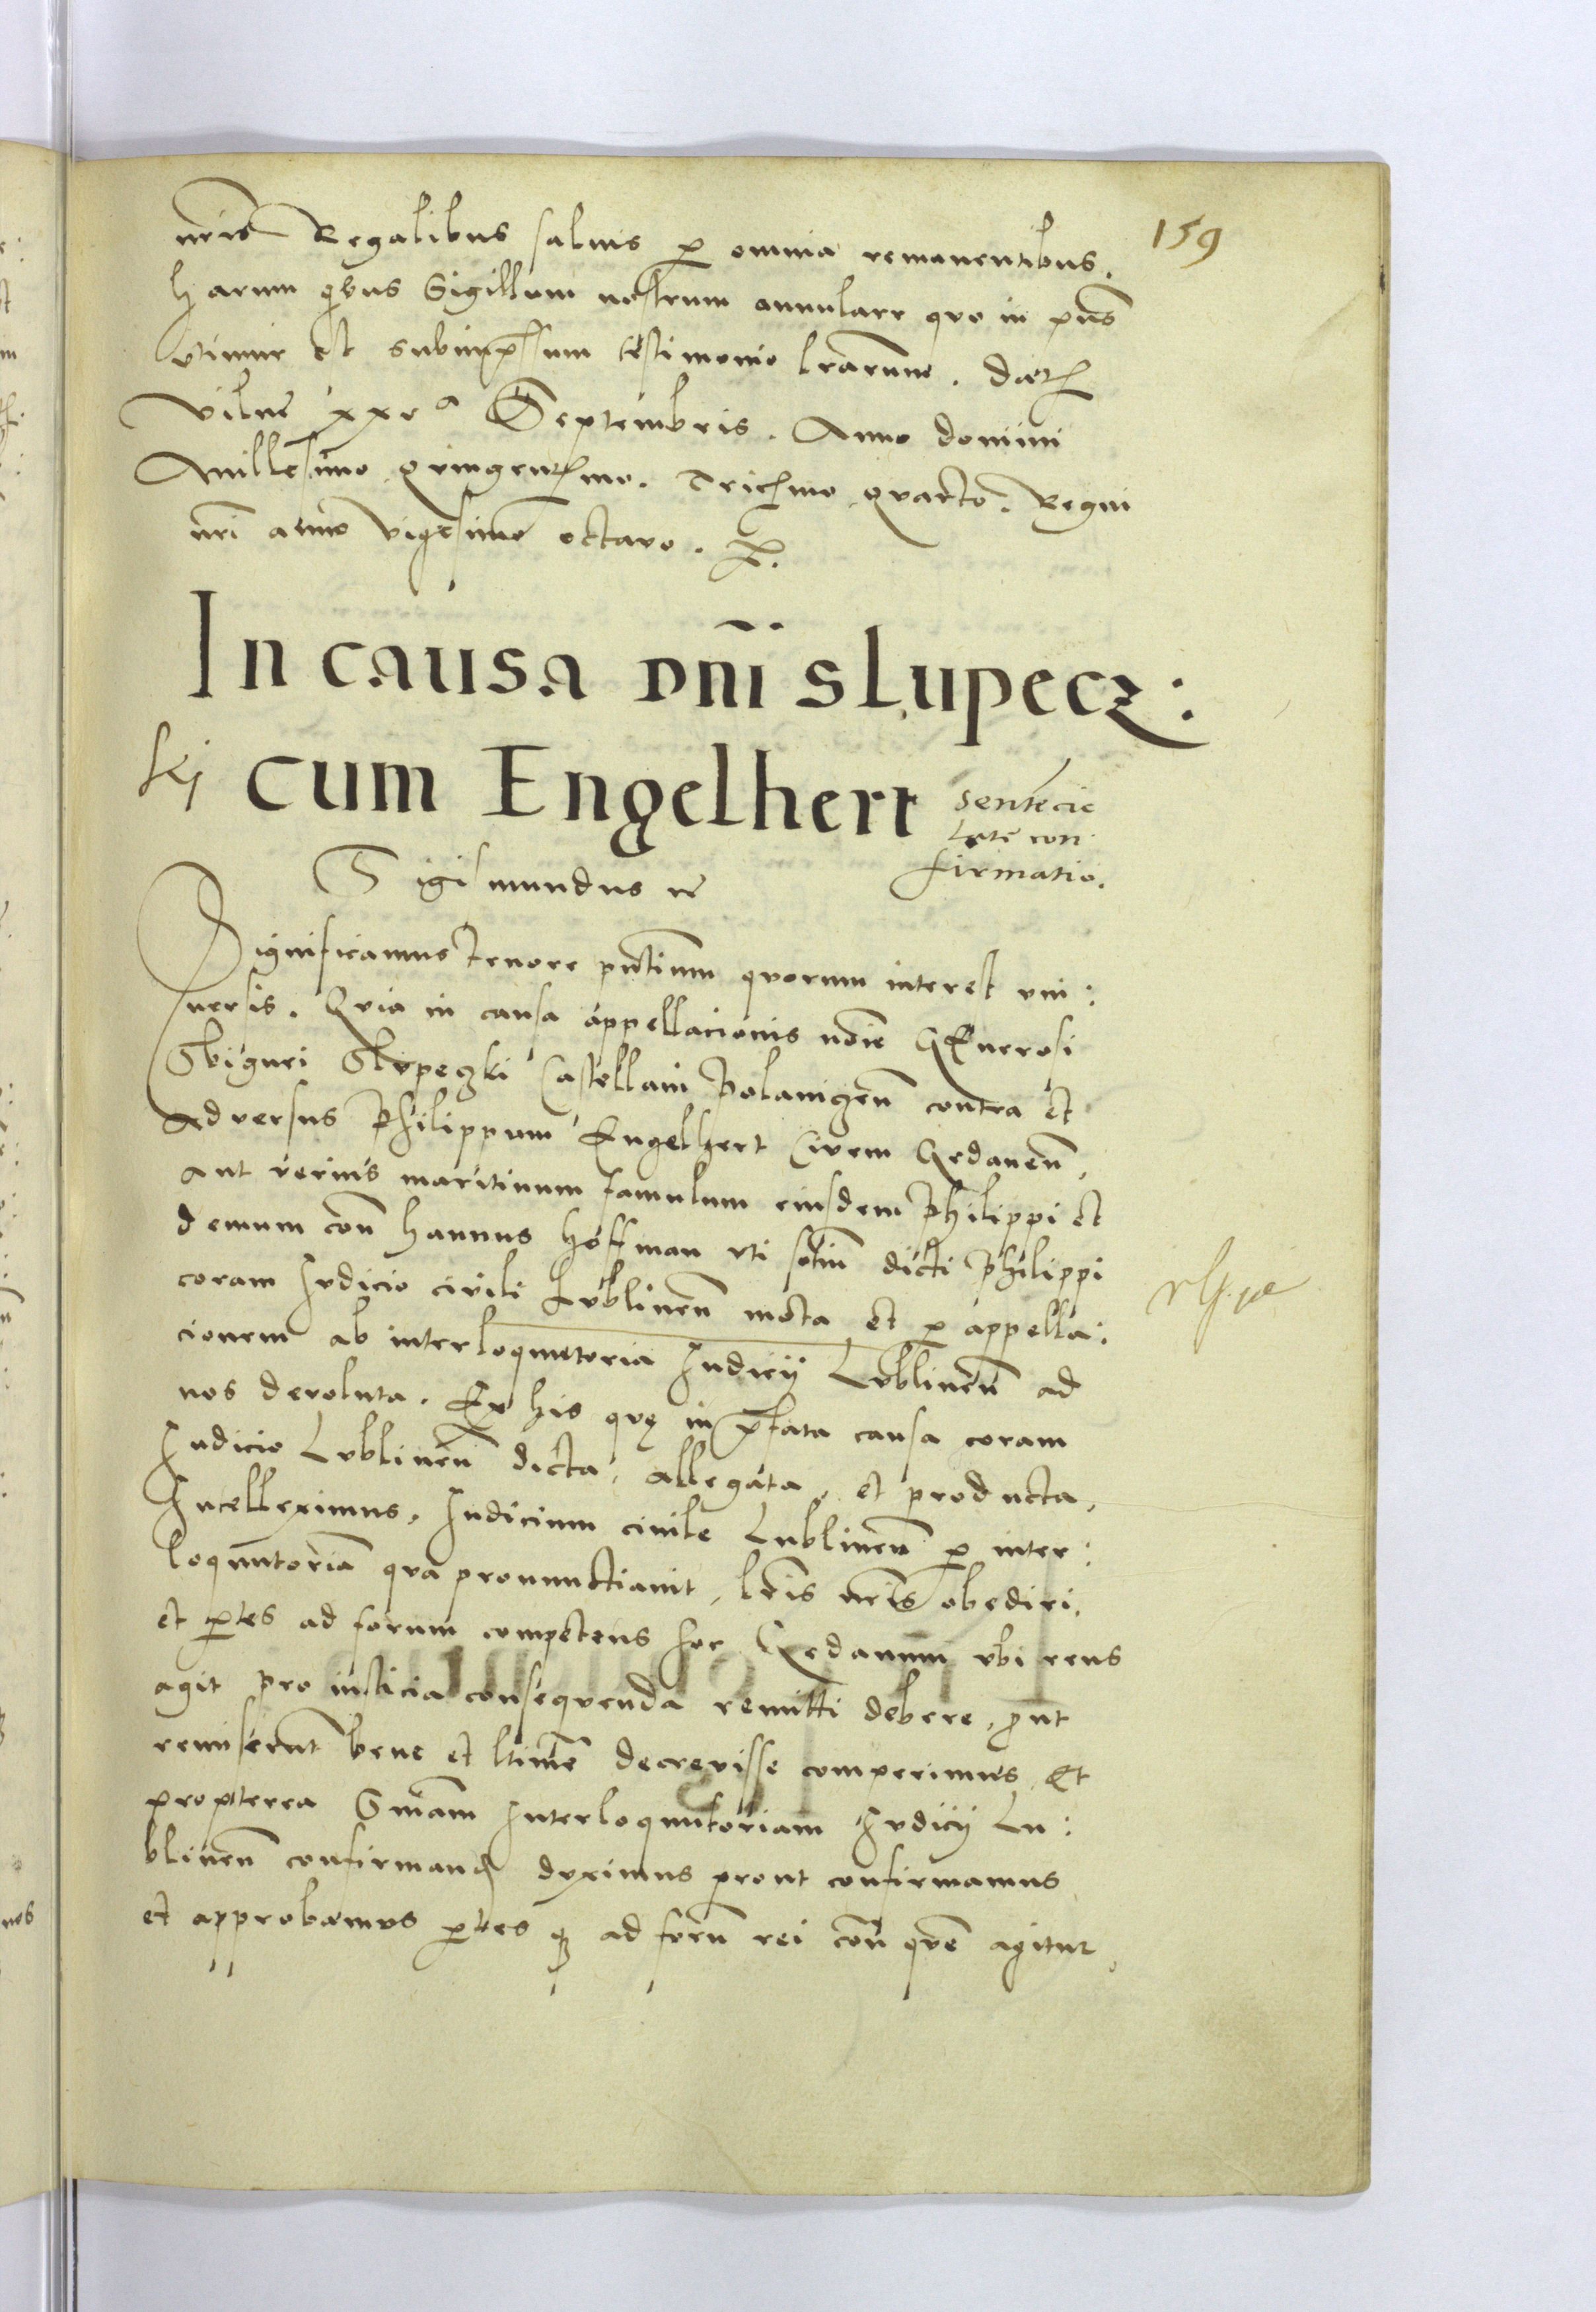 159
nris Regalibus salvis p omnia remanentibus.
harum qbus Sigillum nostrum annulare quo in pns
vtimur est subimpssum testimonio lrarum. Dat
Vilne xxva Septembris. Anno domini
Millesimo quingentmo. Tricmo quarto. Regni
nri anno vigesimo octavo.
In causa dni slupecz:
kj cum Engelhert
sentecie
late con
firmatio.
Sigismundus rc
Significamus tenore pntium quorum interest vni:
uersis. Quia in causa appellacionis noie GEnerosi
Sbignei Slupeczki Castellani Polanigen contra et
adversus Philippum Engelhert Civem Gedanen,
aut verius maritinum famulum eiusdem Philippi et
demum con hannus hoffman uti sotiu dicti Philippi
coram Iudicio civili Lublinen mota et p appella:
cionem ab interloquutoria Iudicij Lublinen ad
nos devoluta. Ex his que in pfata causa coram
Iudicio Lublinen dicta, allegata, et producta,
Intelleximus, Iudicium civile Lublinen p inter:
loquutoria qua pronunctiauit, lris nris obediri,
et ptes ad forum competens hoc Gedanum vbi reus
agit pro iusticia consequenda remitti debere, put
remiserunt bene et ltime decrevisse comperimus, Et
propterea Sniam Interloquutoriam Iudicij Lu:
blinen confirmand duximus prout confirmamus
et approbamus ptes q ad foru rei con que agitur,